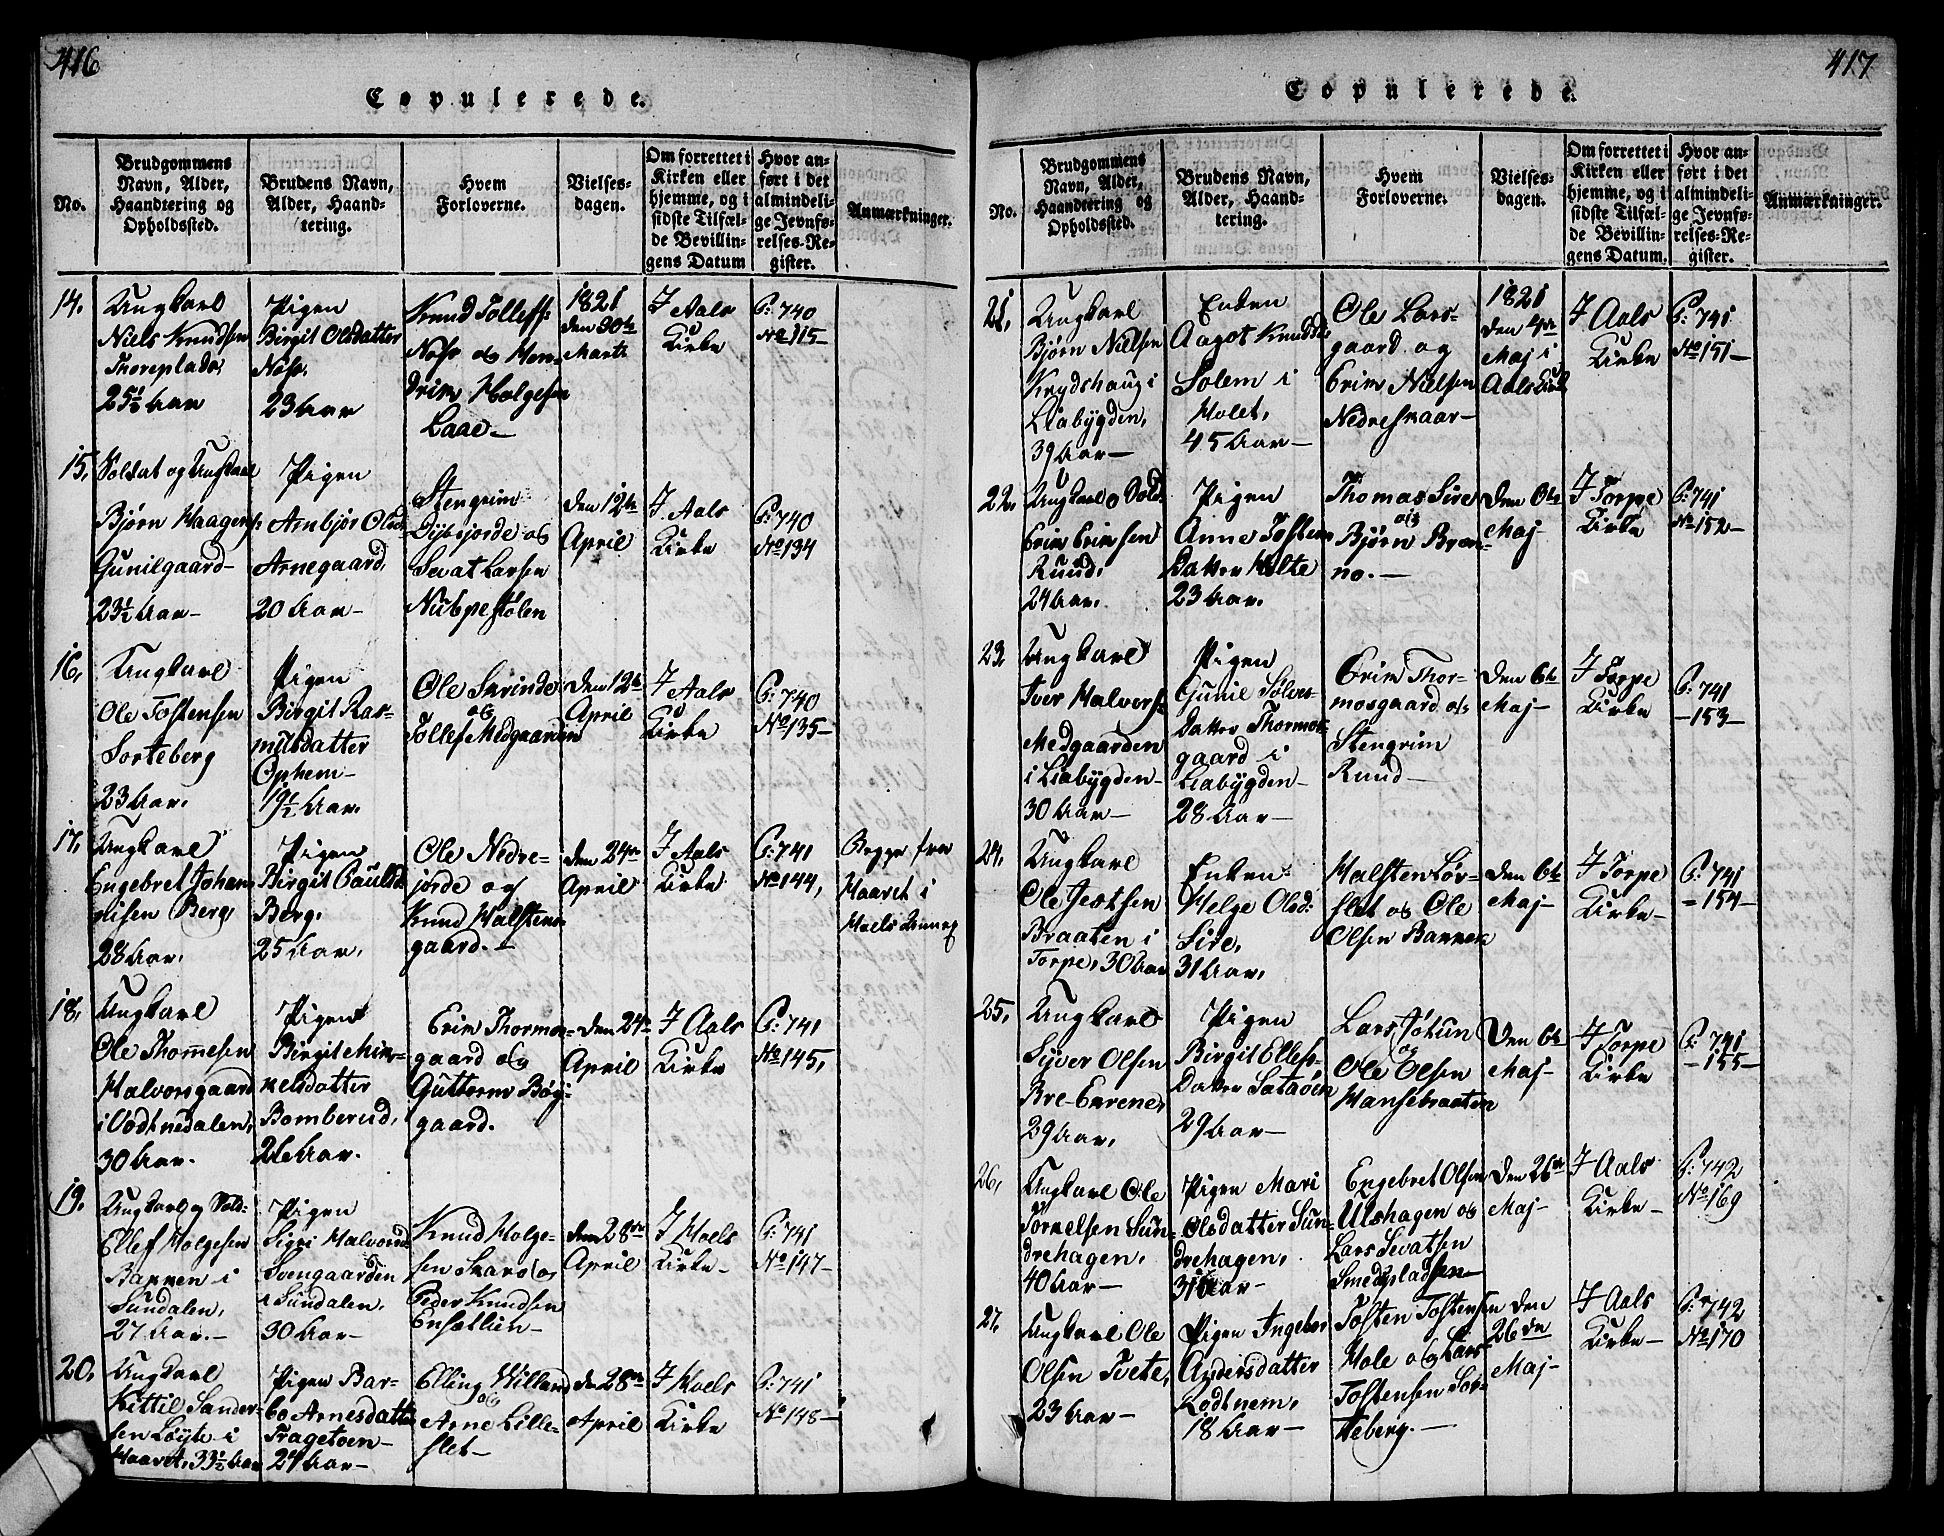 416
Copulerede.
No.
Brudgommens
Navn, Alder,
Haandtering og
Opholdssted.
Brudens Navn,
Alder, Haand-
tering.
Hvem
Forloverne.
Vielses-
dagen.
Om forrettet i
Kirken eller
hjemme, og i
sidste Tilfæl-
de Bevillin-
gens Datum
Hvor an-
ført i det
almindeli-
ge Jevnfø-
relses-Re-
gister.
Anmærkninger.
14.
Ungkarl
Niels Knudsen
Thoreplads,
25½ Aar
Pigen
Birgit Olsdatter
Noss,
23 Aar
Knud Tollefs:
Noss og Hen-
drik Holgesen
Laae
1821
den 30te
Marti
I Aals
Kirke
P: 740
No 115
15.
Soldat og Ungkarl
Bjørn Haagens:
Gunilgaard
23½ Aar
Pigen
Arnbjør Olsd:
Arnegaard,
20 Aar
Stengrim
og
Sevat Larsen
Nubgestølen
den 12te
April
I Aals
Kirke
P: 740
No 134
16.
Ungkarl
Ole Tostensen
Sorteberg
23 Aar.
Pigen
Birgit Ras-
musdatter
Ophem
19½ Aar.
Ole Skrinde
og
Tollef Medgaarden
den 12te
April
I Aals
Kirke
P: 740
No 135
17.
Ungkarl
Engebret Johan-
nisen Berg,
28 Aar.
Pigen
Birgit Paulsd:
Berg,
25 Aar.
Ole Nedre-
jorde og
Knud Halstens-
gaard.
den 24de
April
I Aals
Kirke
P: 741
No 144,
Begge fra
Haavet i
Hoels Annex
18.
Ungkarl
Ole Thommesen
Halvorsgaard
i Vodtnedalen,
30 Aar.
Pigen
Birgit Mik-
kelsdatter
Bomberud,
26 Aar.
Erik Thormos-
gaard og
Guttorm Bøy-
gaard.
den 24de
April
I Aals
Kirke
P: 741
No 145,
19.
Ungkarl og Sold-
Ellef Holgesen
Bakken i
Sundalen,
27 Aar.
Pigen
Sigri Halvorsd:
Svengaarden
i Sundalen,
30 Aar
Knud Holge-
sen Skaro og
Peder Knudsen
den 28de
April
I Hoels
Kirke
P: 741
No 147
20.
Ungkarl
Kittil Sander-
sen Løyte i
Haavet, 33½ Aar
Pigen Bar-
bo Arnesdatter
Tragetoen
24 Aar
Elling Villand
og
Arne Lille-
slet
den 28de
April
I Hoels
Kirke
P: 741
No 148
417
Copulerede.
No.
Brudgommens
Navn, Alder,
Haandtering og
Opholdssted.
Brudens Navn,
Alder, Haand-
tering.
Hvem
Forloverne.
Vielses-
dagen.
Om forrettet i
Kirken eller
hjemme, og i
sidste Tilfæl-
de Bevillin-
gens Datum.
Hvor an-
ført i det
almindeli-
ge Jevnfø-
relses-Re-
gister.
Anmærkninger.
21.
Ungkarl
Bjørn Nielsen
Krydshaug i
Liabygden,
39 Aar
Enken
Aagot Knudsd:
Solem i
Holet,
45 Aar
Ole Lars-
gaard og
Erik Nielsen
Nedreskaar
1821
den 4de
Maj i
Aals Kirke
I Aals
Kirke
P: 741
No 151
22.
Ungkarl o Sold:
Erik Eriksen
Ruud,
24 Aar.
Pigen
Anne Tosten
Datter Holte
23 Aar.
Thomas Sire
og
Bjørn Bræn-
no.
den 6te
Maj
I Torpe
Kirke
P: 741
No 152
23.
Ungkarl
Iver Halvors:
Medgaarden
i Liabygden
30 Aar
Pigen
Gunil Sølves-
Datter Thormos-
gaard i
Liabygden
28 Aar
Erik Thor-
mosgaard og
Stengrim
Ruud
den 6te
Maj
I Torpe
Kirke
P: 741
153
24.
Ungkarl
Ole Jestsen
Braaten i
Torpe, 30 Aar
Enken
Helge Olsd:
Sire,
31 Aar.
Halsten Lør-
slet og Ole
Olsen Bakken
den 6te
Maj
I Torpe
Kirke
P: 741
154
25.
Ungkarl
Syver Olsen
Bre-Eikrene,
29 Aar.
Pigen
Birgit Ellefs-
Datter Sataøen
29 Aar
Lars Jøtun
og
Ole Olsen
Hansebraaten
den 6te
Maj
I Torpe
Kirke
P: 741
155
26.
Ungkarl Ole
Torkelsen Sun-
drehagen,
40 Aar
Pigen Mari
Olsdatter Sun-
drehagen,
31 Aar
Engebret Olsen
Ulshagen og
Lars Sevatsen
Smedspladsen
den 26de
Maj
I Aals
Kirke
P: 742
No 169
27.
Ungkarl Ole
Olsen Tvete,
23 Aar
Pigen Ingebor
Andersdatter
Rodtnem,
18 Aar
Tosten Tostensen
Hole og Lars
Tostensen Sor-
teberg.
den
26de
Maj
I Aals
Kirke
P: 742
No 170